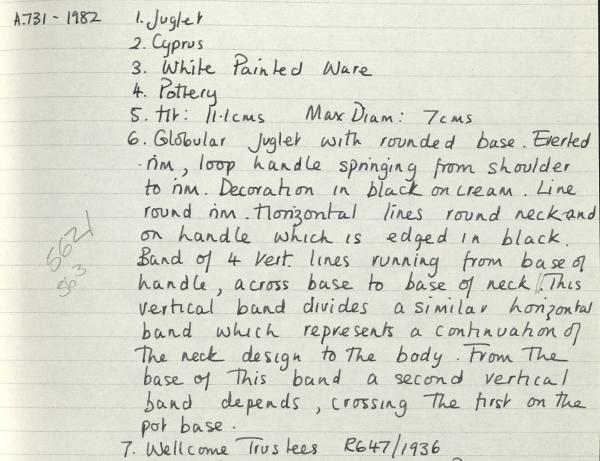 A.731 - 1982 1. Juglet
2. Cyprus
3. White Painted Ware
4. Pottery
5. Ht: 11.1cms Max Diam: 7cms
6. Globular juglet with rounded base. Everted
rim, loop handle springing from shoulder
to rim. Decoration in black on cream. Line
round rim. Horizontal lines round neck and
on handle which is edged in black.
Band of 4 vert. lines running from base of
handle, across base to base of neck. This
vertical band divides a similar horizontal
band which represents a continuation of
the neck design to the body. From the
base of this band a second vertical
band depends, crossing the first on the
pot base.
7. Wellcome Trustees R647/1936
562/
563